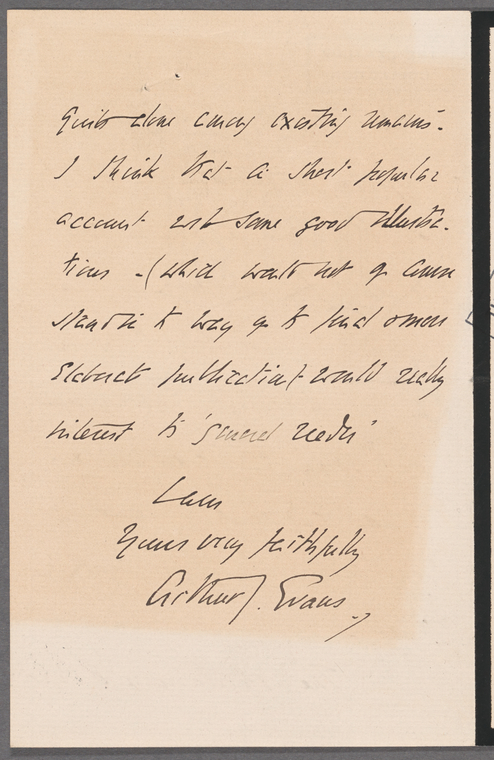 quite alone among existing remains.
I think that a short popular
account with some good illustra-
tions - (which would not of course
stand in the way of the final & more
elaborate publication) would really
interest the 'general reader'
I am
Yours very faithfully
Arthur J. Evans